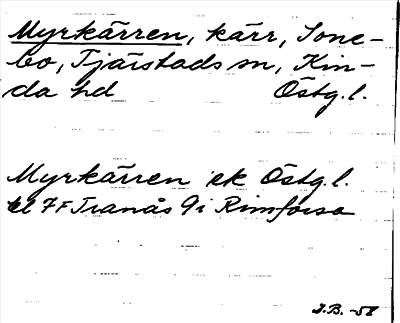 Myrkärren, kärr, Sone-
bo, Tjärstads sn, Kin-
da hd Östg.l.
Myrkärren ek Östg.l.
bl 7F Tranås 9i Rimforsa
J.B. -58